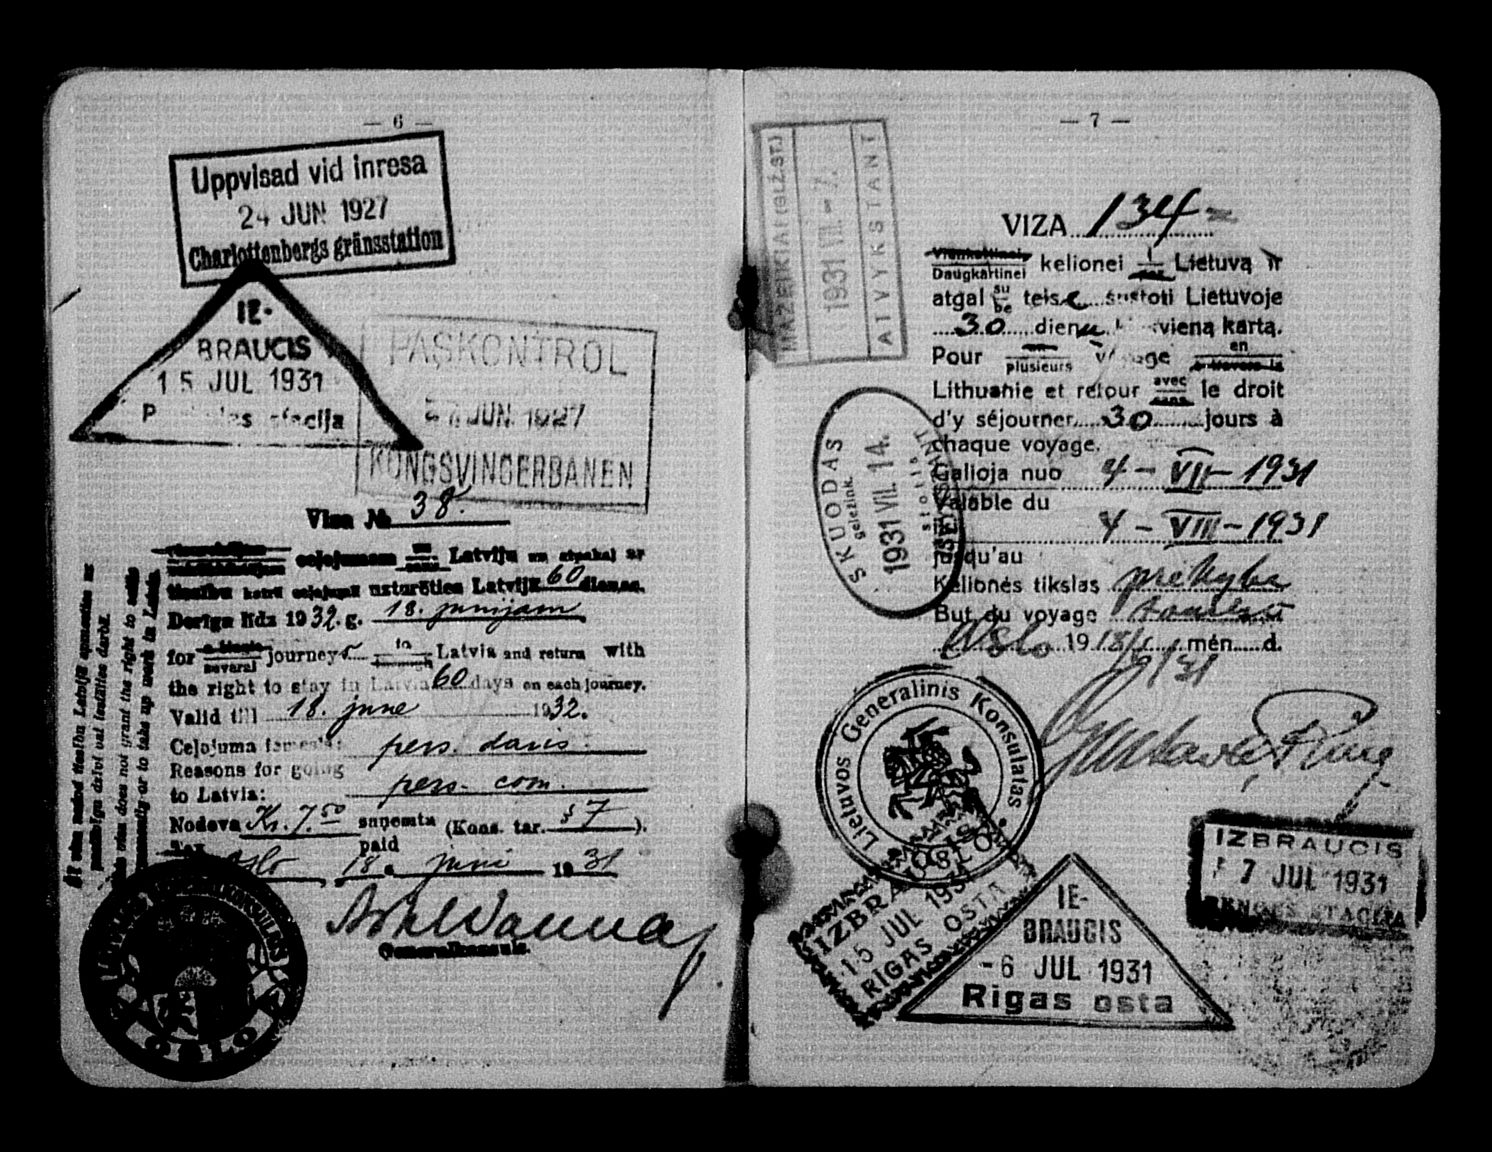 — 6 —
Uppvisad vid inresa
24 JUN 1927
Charlottenbergs gränsstation
IE-
BRAUCIS
15 JUL 1931
stacija
PASKONTROL
JUN. 1927
KONGSVINGERBANEN
Visa № 38.
ceļojumam Latvijā un atpakaļ ar
tiesību katrā ceļojumā uzturēties Latvijā 60 dienas.
Derīga līdz 1932. g. 18. junijam
for several journeys to Latvia and return with
the right to stay in Latvia 60 days on each journey.
Valid till 18. june 1932.
Ceļojuma iemesls: pers. daris.
Reasons for going
to Latvia: pers. com.
Nodeva Kr. 7.50 saņemta (Kons. tar. § 7).
paid
Oslo 18. juni 1931
Generalkonsuls.
does not grant the right to settle
or to take up work in Latvia
OSLO
— 7 —
MAŽEIKIAI (GLŽ.STJ
1931 VII. - 7.
ATVYKSTANT
VIZA 134
Vienkartinei
Daugkartinei kelionei į Lietuvą ir
atgal su be teise sustoti Lietuvoje
30 dienų vieną kartą.
Pour un plusieurs voyage en à travers la
Lithuanie et retour avec sans le droit
d'y séjourner 30 jours à
chaque voyage.
Galioja nuo 4 - VII - 1931
Valable du
4 - VIII - 1931
jusqu'au
Kelionės tikslas prekyba
But du voyage
Oslo 19 18/6 mėn. d.
19/31
SKUODAS
geležink. stotis
1931 VII. 14.
Lietuvos Generalinis Konsulatas
OSLO
IZBRAUCIS
15 JUL 1931
RIGAS OSTA
IE-
BRAUCIS
-6 JUL 1931
Rigas osta
IZBRAUCIS
7 JUL 1931
RENGES STACIJA